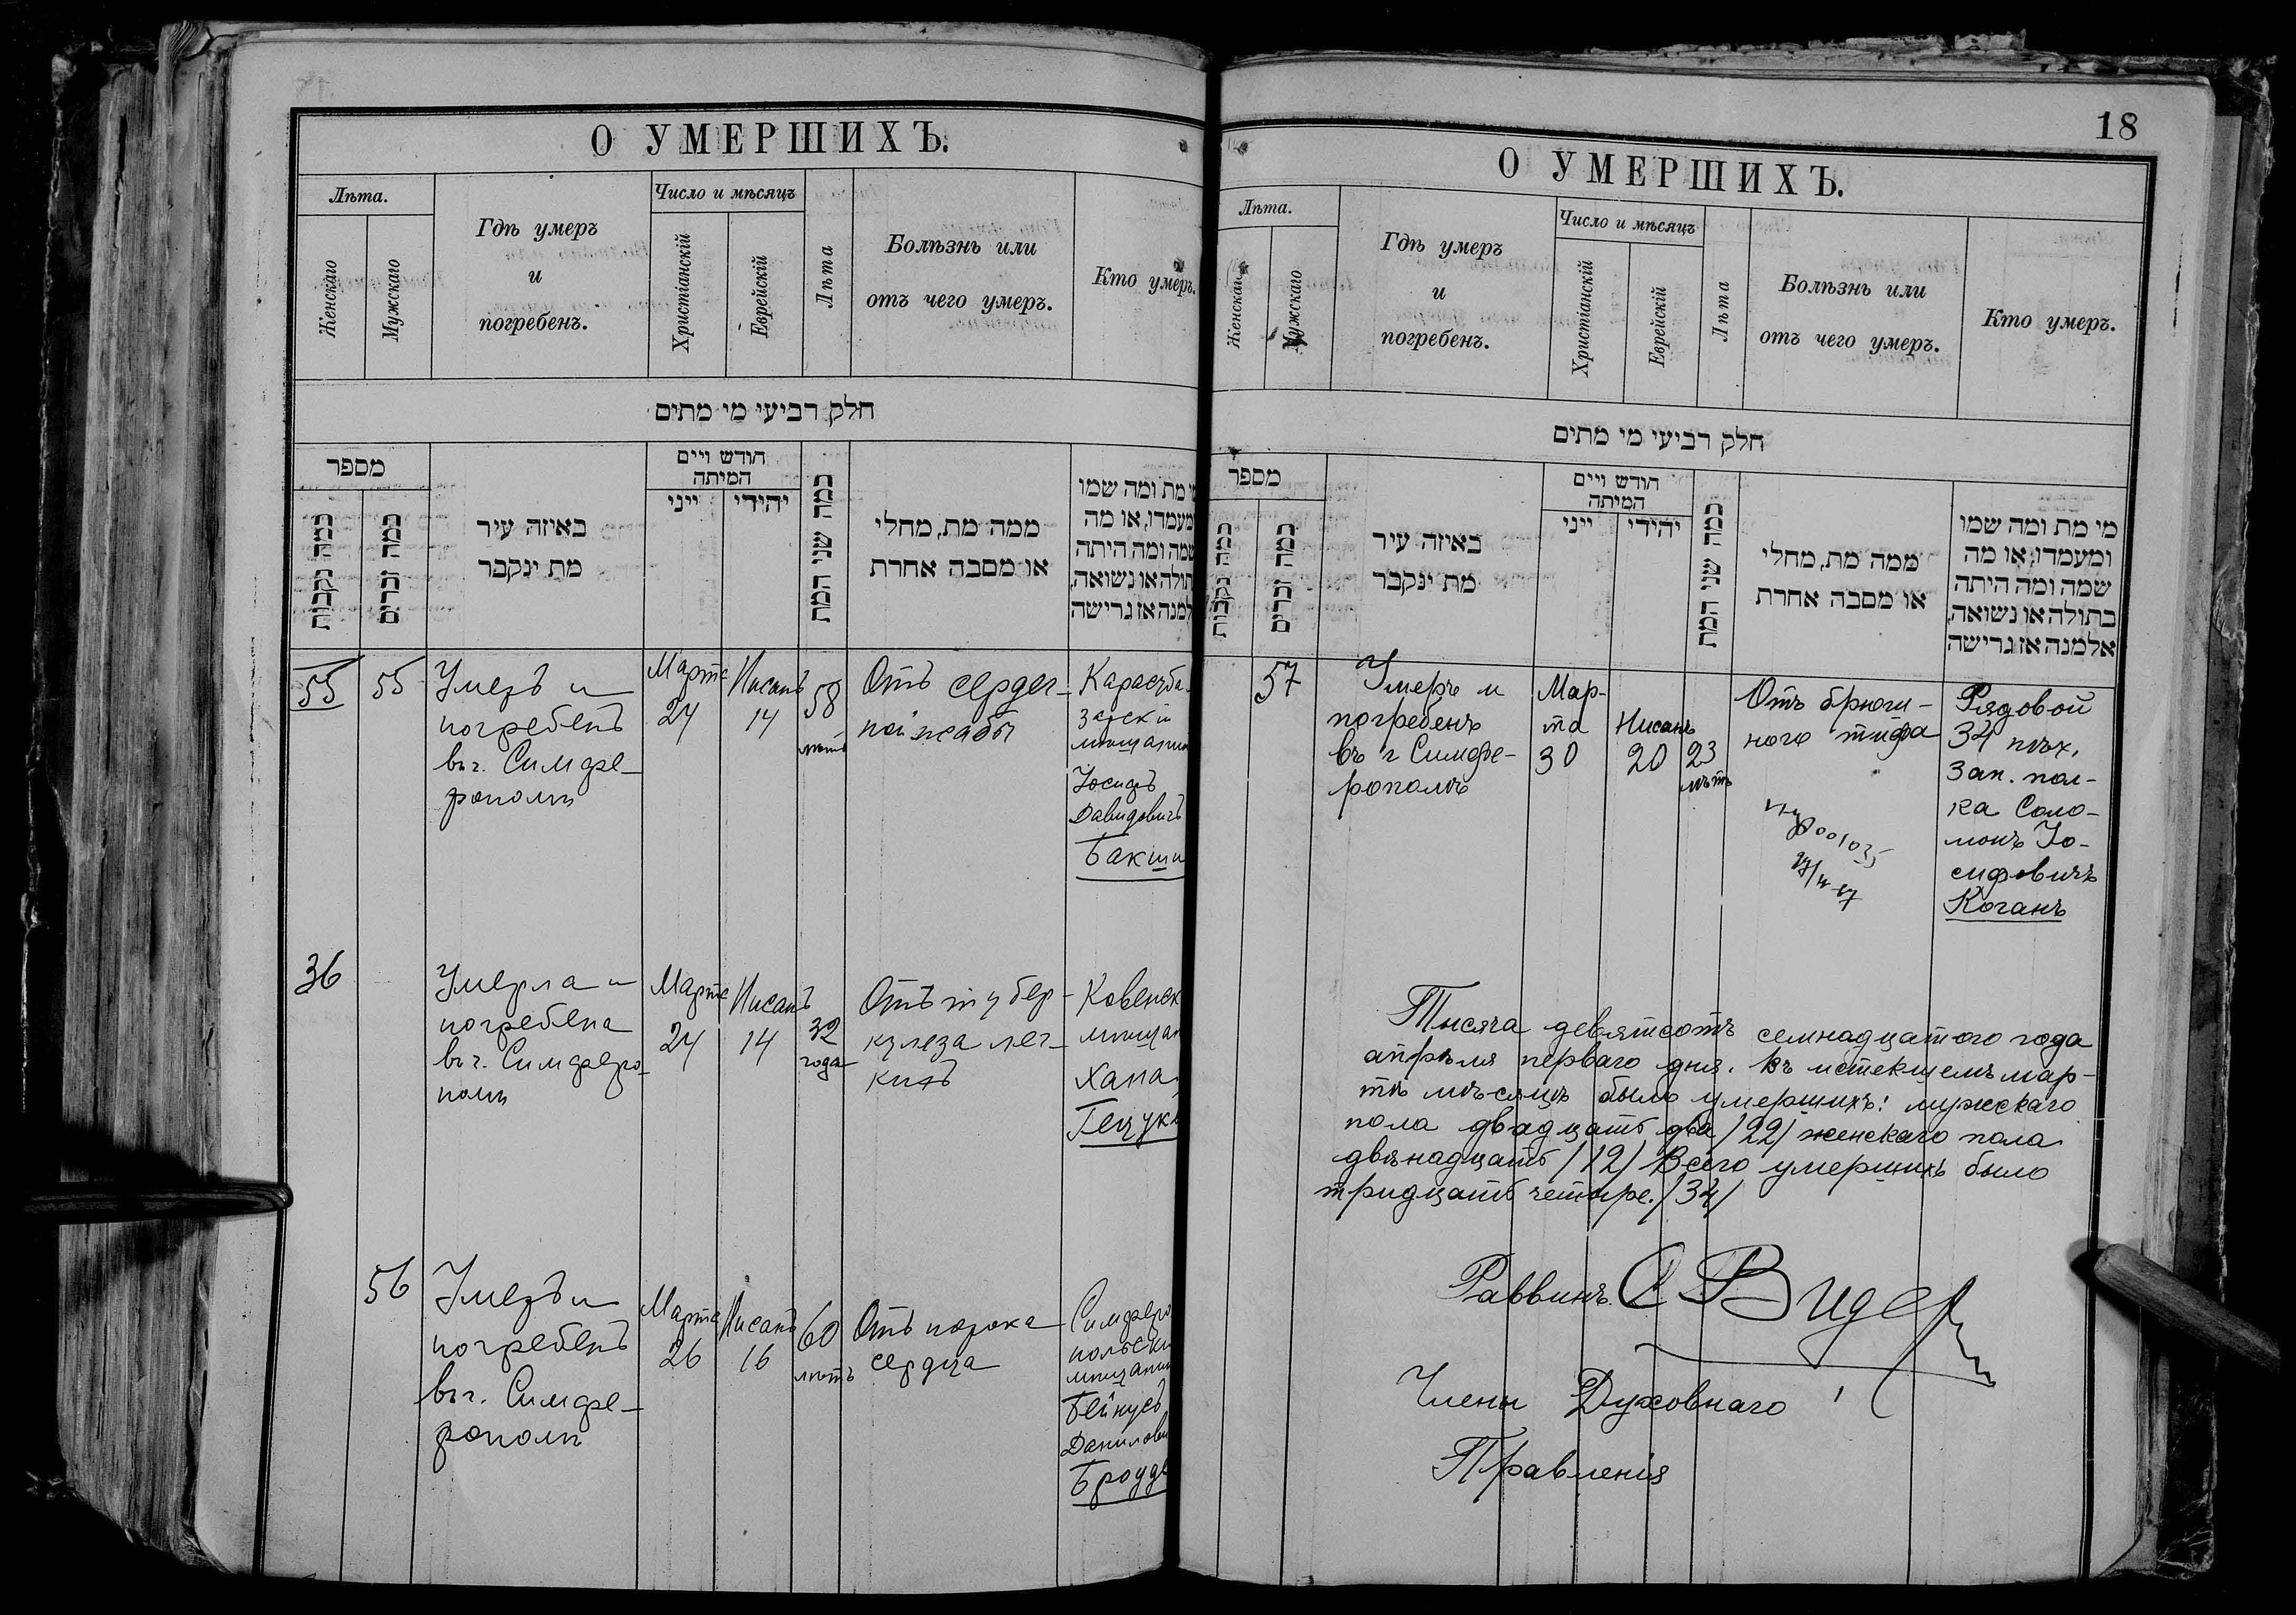 О УМЕРШИХЪ.
Лѣта.
Женскаго
Мужскаго
Гдѣ умеръ
и
погребенъ.
Число и мѣсяцъ
Христіанскій
Еврейскій
Лѣта
Болѣзнь или
отъ чего умеръ.
Кто умеръ.
חלק רביעי מי מתים
מספר
כמה נקבות
כמה זכרים
באיזה עיר
מת ינקבר
חודש ויים
המיתה
ייני
יהידי
כמה שני המת
ממה מת, מחלי
או מסבה אחרת
מי מת ומה שמו
ומעמדו, או מה
שמה ומה היתה
בתולה או נשואה,
אלמנה אז גרישה
55
55
Умеръ и
погребенъ
въ г. Симфе-
рополѣ
Марта
24
Нисанъ
14
58
лѣтъ
Отъ сердеч-
ной жабы
Карасуба-
зарскій
мѣщанин
Іосифъ
Давидовичъ
Бакши
36
Умерла и
погребена
въ г. Симферо-
полѣ
Марта
24
Нисанъ
14
32
года
Отъ тубер-
кулеза лег-
кихъ
Ковенск
мѣщан
Хана
56
Умеръ и
погребенъ
въ г. Симфе-
рополѣ
Марта
26
Нисанъ
16
60
лѣтъ
Отъ порока
сердца
Симферо
польскі
мѣщанин
Бейнусъ
Данилови
18
О УМЕРШИХЪ.
Лѣта.
Женскаго
Мужскаго
Гдѣ умеръ
и
погребенъ.
Число и мѣсяцъ
Христіанскій
Еврейскій
Лѣта
Болѣзнь или
отъ чего умеръ.
Кто умеръ.
חלק רביעי מי מתים
מספר
כמה נקבות
כמה זכרים
באיזה עיר
מת ינקבר
חודש ויים
המיתה
ייני
יהידי
כמה שני המת
ממה מת, מחלי
או מסבה אחרת
מי מת ומה שמו
ומעמדו, או מה
שמה ומה היתה
בתולה או נשואה,
אלמנה אז גרישה
57
Умеръ и
погребенъ
въ г Симфе-
рополѣ
Мар-
та
30
Нисанъ
20
23
лѣтъ
Отъ брюш-
ного тифа
Рядовой
34 пѣх.
Зап. пол-
ка Соло-
монъ Іо-
сифовичъ
Коганъ
Тысяча девятсотъ семнадцатого года
апрѣля перваго дня. Въ истекшемъ мар-
тѣ мѣсяцѣ было умершихъ: мужскаго
пола двадцать два /22/ женскаго пола
двѣнадцать /12/ Всего умершихъ было
тридцать четыре. /34/
Раввинъ
Члены Духовнаго
Правленія